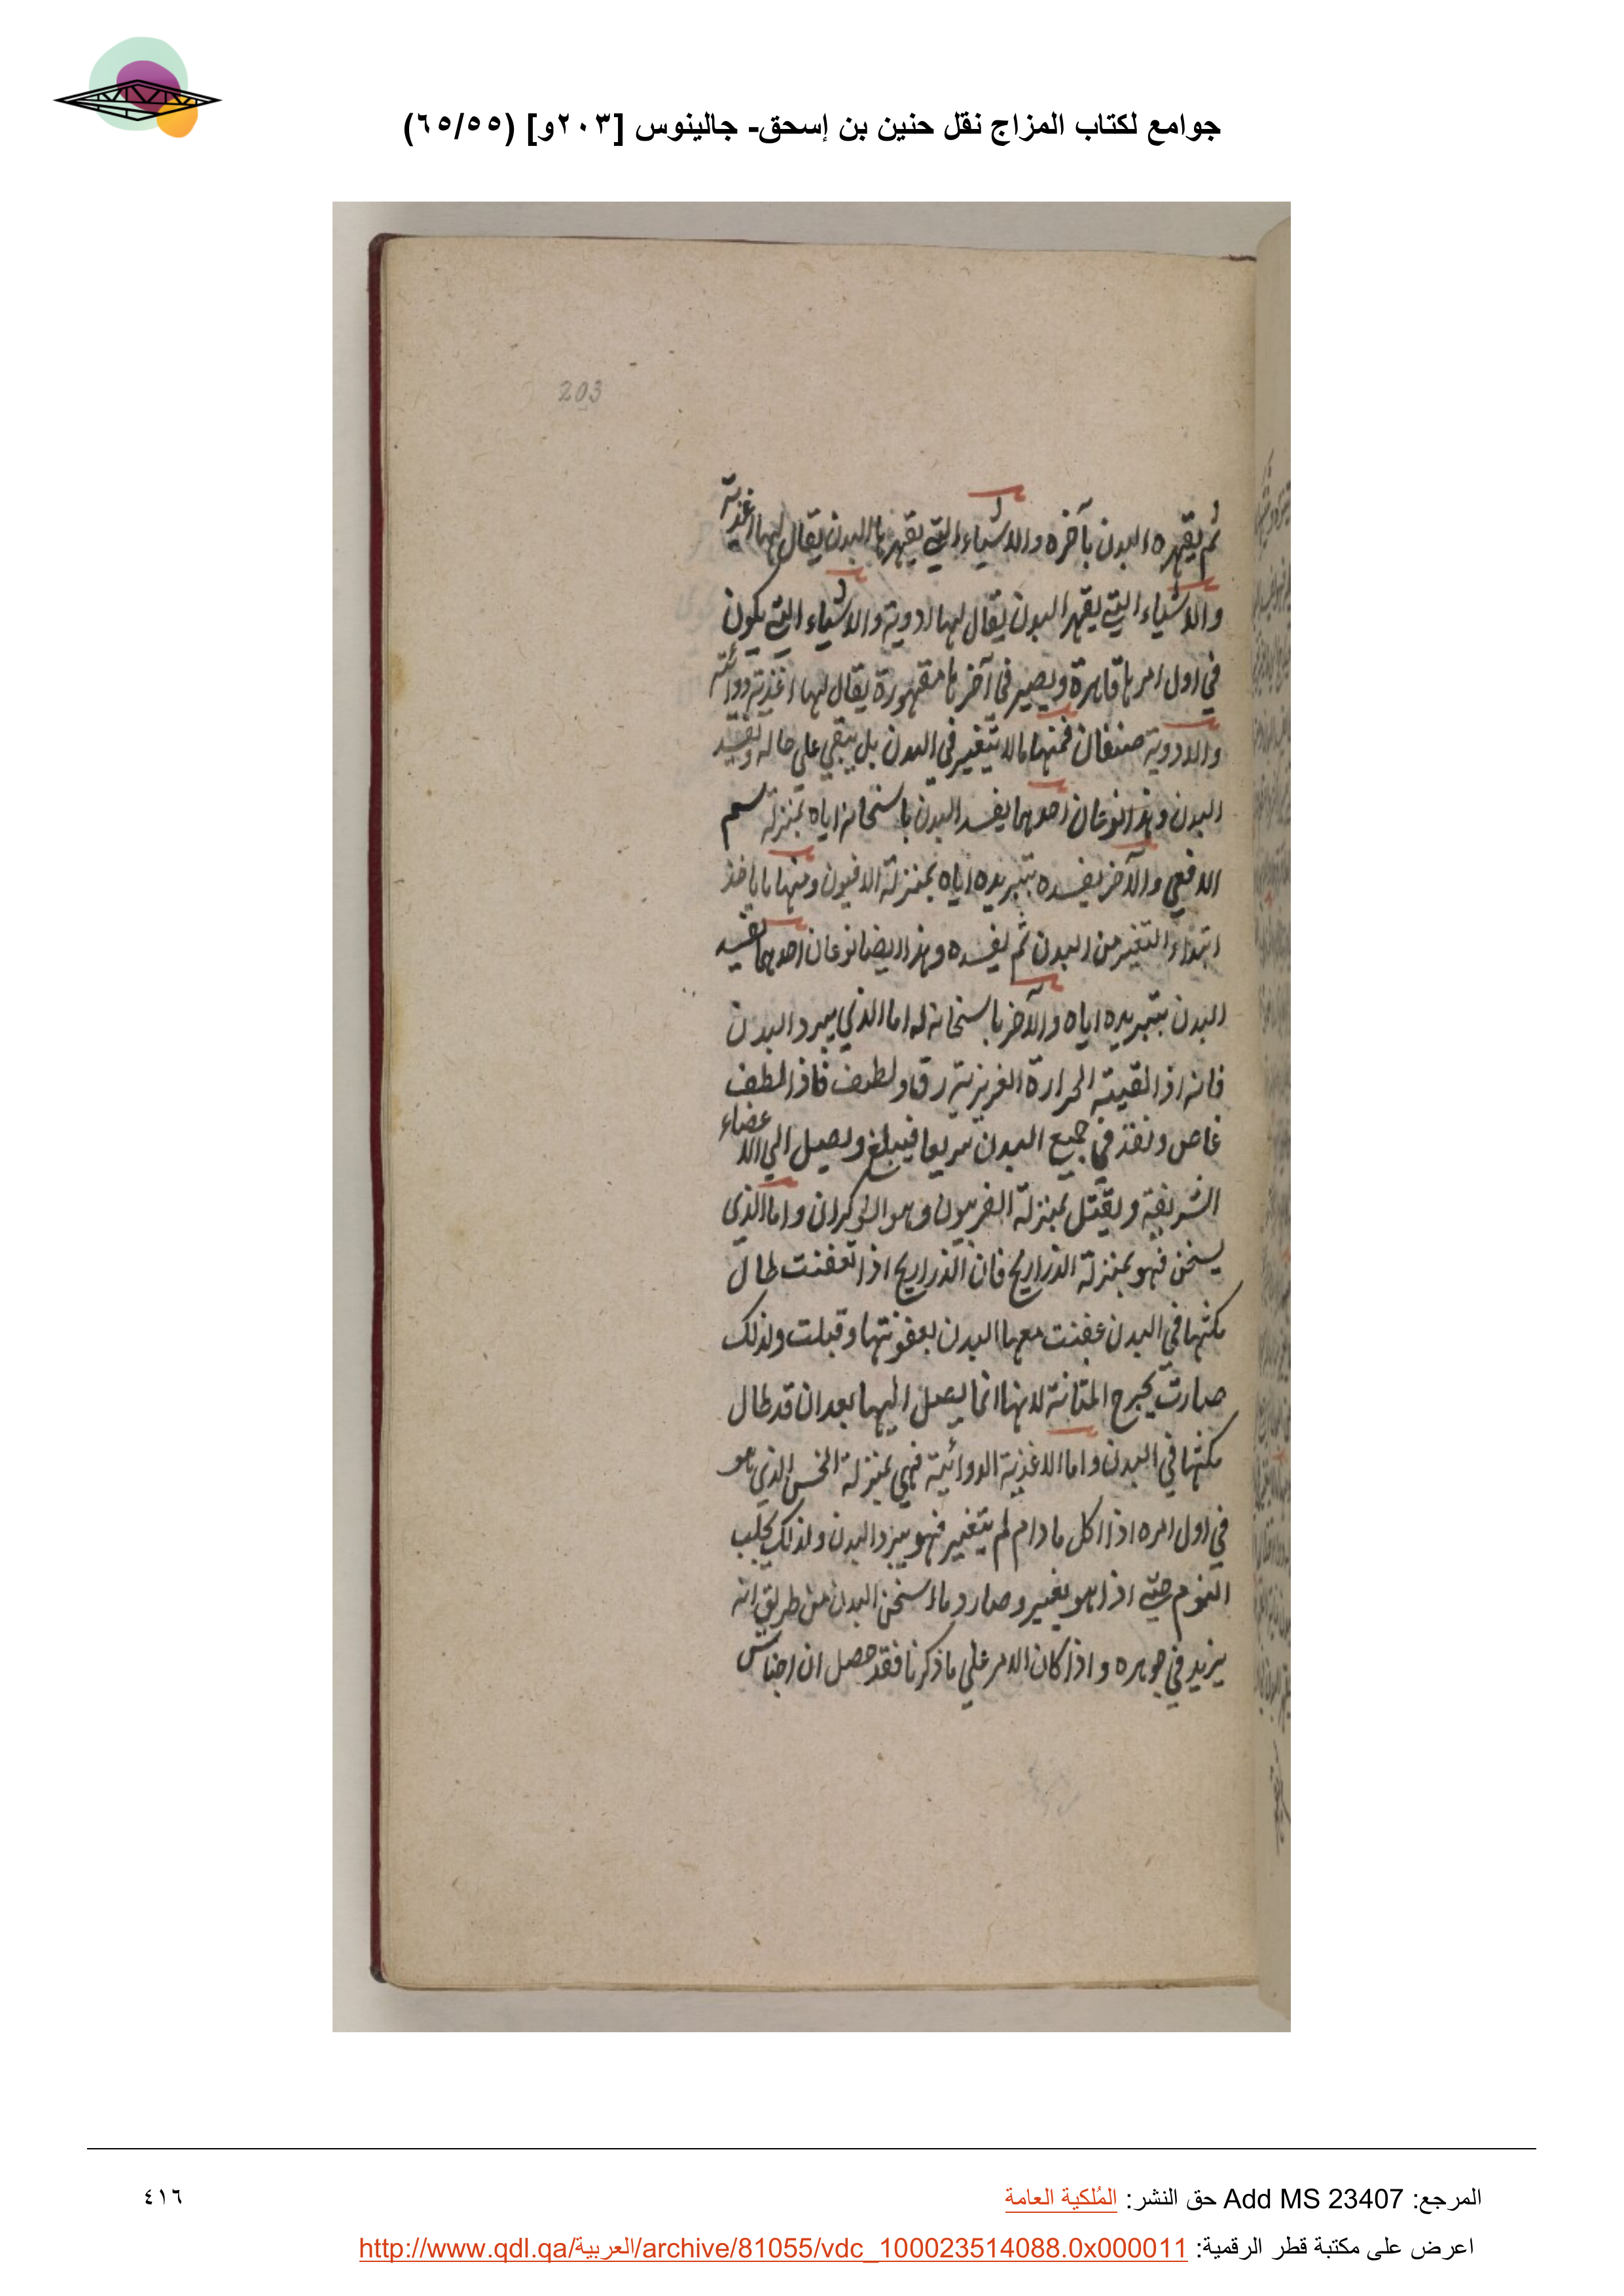 جوامع لكتاب المزاج نقل حنين بن إسحق- جالينوس [٢٠٣و] (٦٥/٥٥)
203
ثم يقهره البدن بآخره والاشياء التي يقهرها البدن يقال لها اغذية
والاشياء التي يقهر البدن يقال لها ادوية والاشياء التي يكون
في اول امرها قاهرة ويصير في آخرها مقهورة يقال لها اغذية دوائية
والادوية صنفان فمنها ما لا يتغير في البدن بل يبقي علي حاله ويفسد
البدن وهذا نوعان احدهما يفسد البدن باسخانه اياه بمنزلة سم
الافعي والآخر يفسده بتبريده اياه بمنزلة الافيون ومنها ما ياخذ
ابتداء التغير من البدن ثم يفسده وهذا ايضا نوعان احدهما يفسد
البدن بتبريده اياه والآخر باسخانه له اما الذي يبرد البدن
فانه اذا لقيته الحرارة الغريزية رق ولطف فاذا لطف
غاص ونفذ في جميع البدن سريعا فيبلغ ويصل الي الاعضاء
الشريفة ويقتل بمنزلة الفربيون وهو الشوكران واما الذي
يسخن فهو بمنزلة الذراريح فان الذراريح اذا تعفنت طال
مكثها في البدن عفنت معها البدن بعفونتها وقبلت ولذلك
صارت يجرح المثانة لانها انما يصل اليها بعد ان قد طال
مكثها في البدن واما الاغذية الدوائية فهي بمنزلة الخس الذي هو
في اول امره اذا اكل ما دام لم يتغير فهو يبرد البدن ولذلك يجلب
النوم حتي اذا هو يغير وصار دما اسخن البدن من طريق انه
يزيد في جوهره واذا كان الامر علي ما ذكرنا فقد حصل ان اجناس
المرجع: Add MS 23407 حق النشر: المُلكية العامة
٤١٦
اعرض على مكتبة قطر الرقمية: http://www.qdl.qa/العربية/archive/81055/vdc_100023514088.0x000011